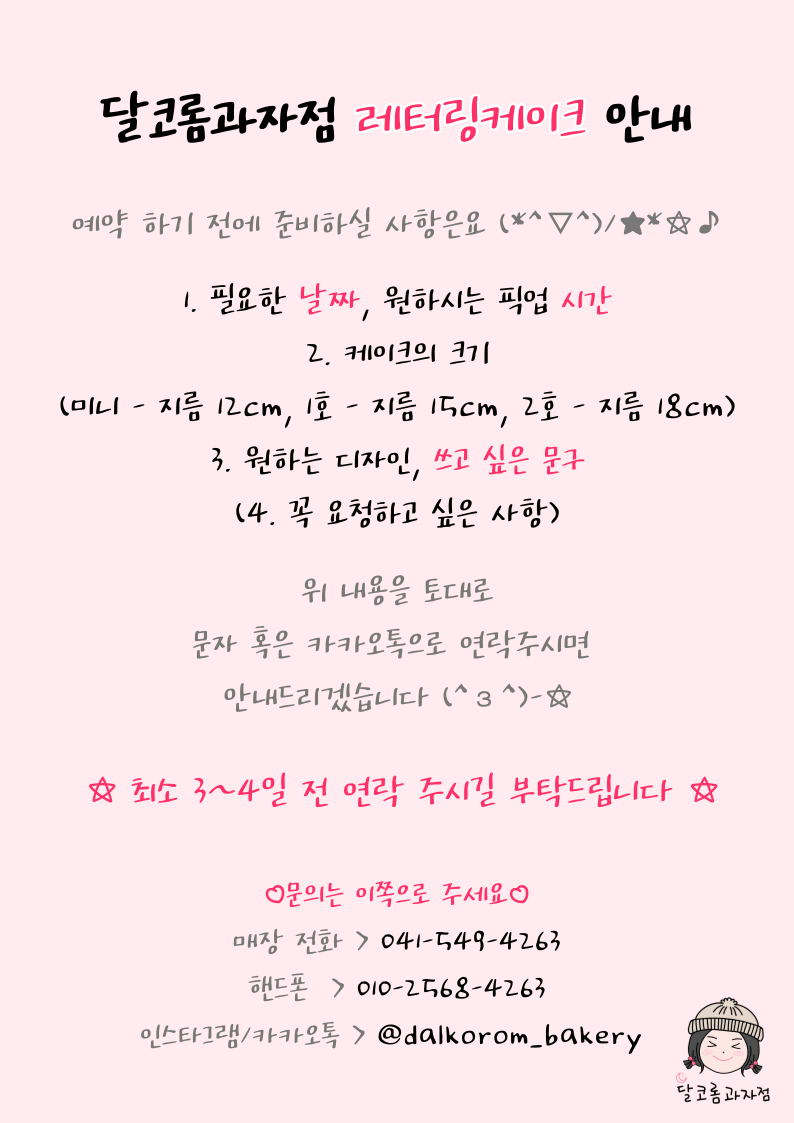 달코롬과자점 레터링케이크 안내
예약 하기 전에 준비하실 사항은요 (*^▽^)/★*☆♪
1. 필요한 날짜, 원하시는 픽업 시간
2. 케이크의 크기
(미니 - 지름 12cm, 1호 - 지름 15cm, 2호 - 지름 18cm)
3. 원하는 디자인, 쓰고 싶은 문구
(4. 꼭 요청하고 싶은 사항)
위 내용을 토대로
문자 혹은 카카오톡으로 연락주시면
안내드리겠습니다 (^ 3 ^)-☆
☆ 최소 3~4일 전 연락 주시길 부탁드립니다 ☆
♡문의는 이쪽으로 주세요♡
매장 전화 > 041-549-4263
핸드폰 > 010-2568-4263
인스타그램/카카오톡 > @dalkorom_bakery
달코롬과자점